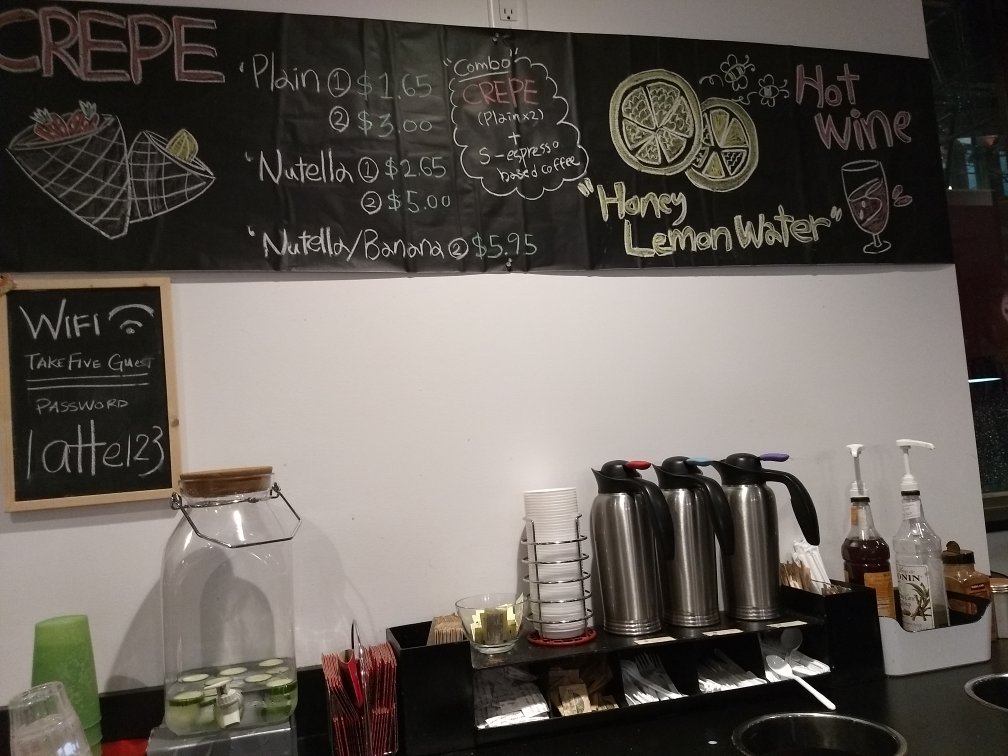 CREPE
'Plain ① $1.65
② $3.00
'Nutella ① $2.65
② $5.00
'Nutella/Banana ② $5.95
"Combo"
CREPE
(Plain x2)
+
S-espresso
based coffee
"Honey
Lemon Water"
Hot
wine
WIFI
TAKE FIVE GUEST
PASSWORD
latte123
ONIN